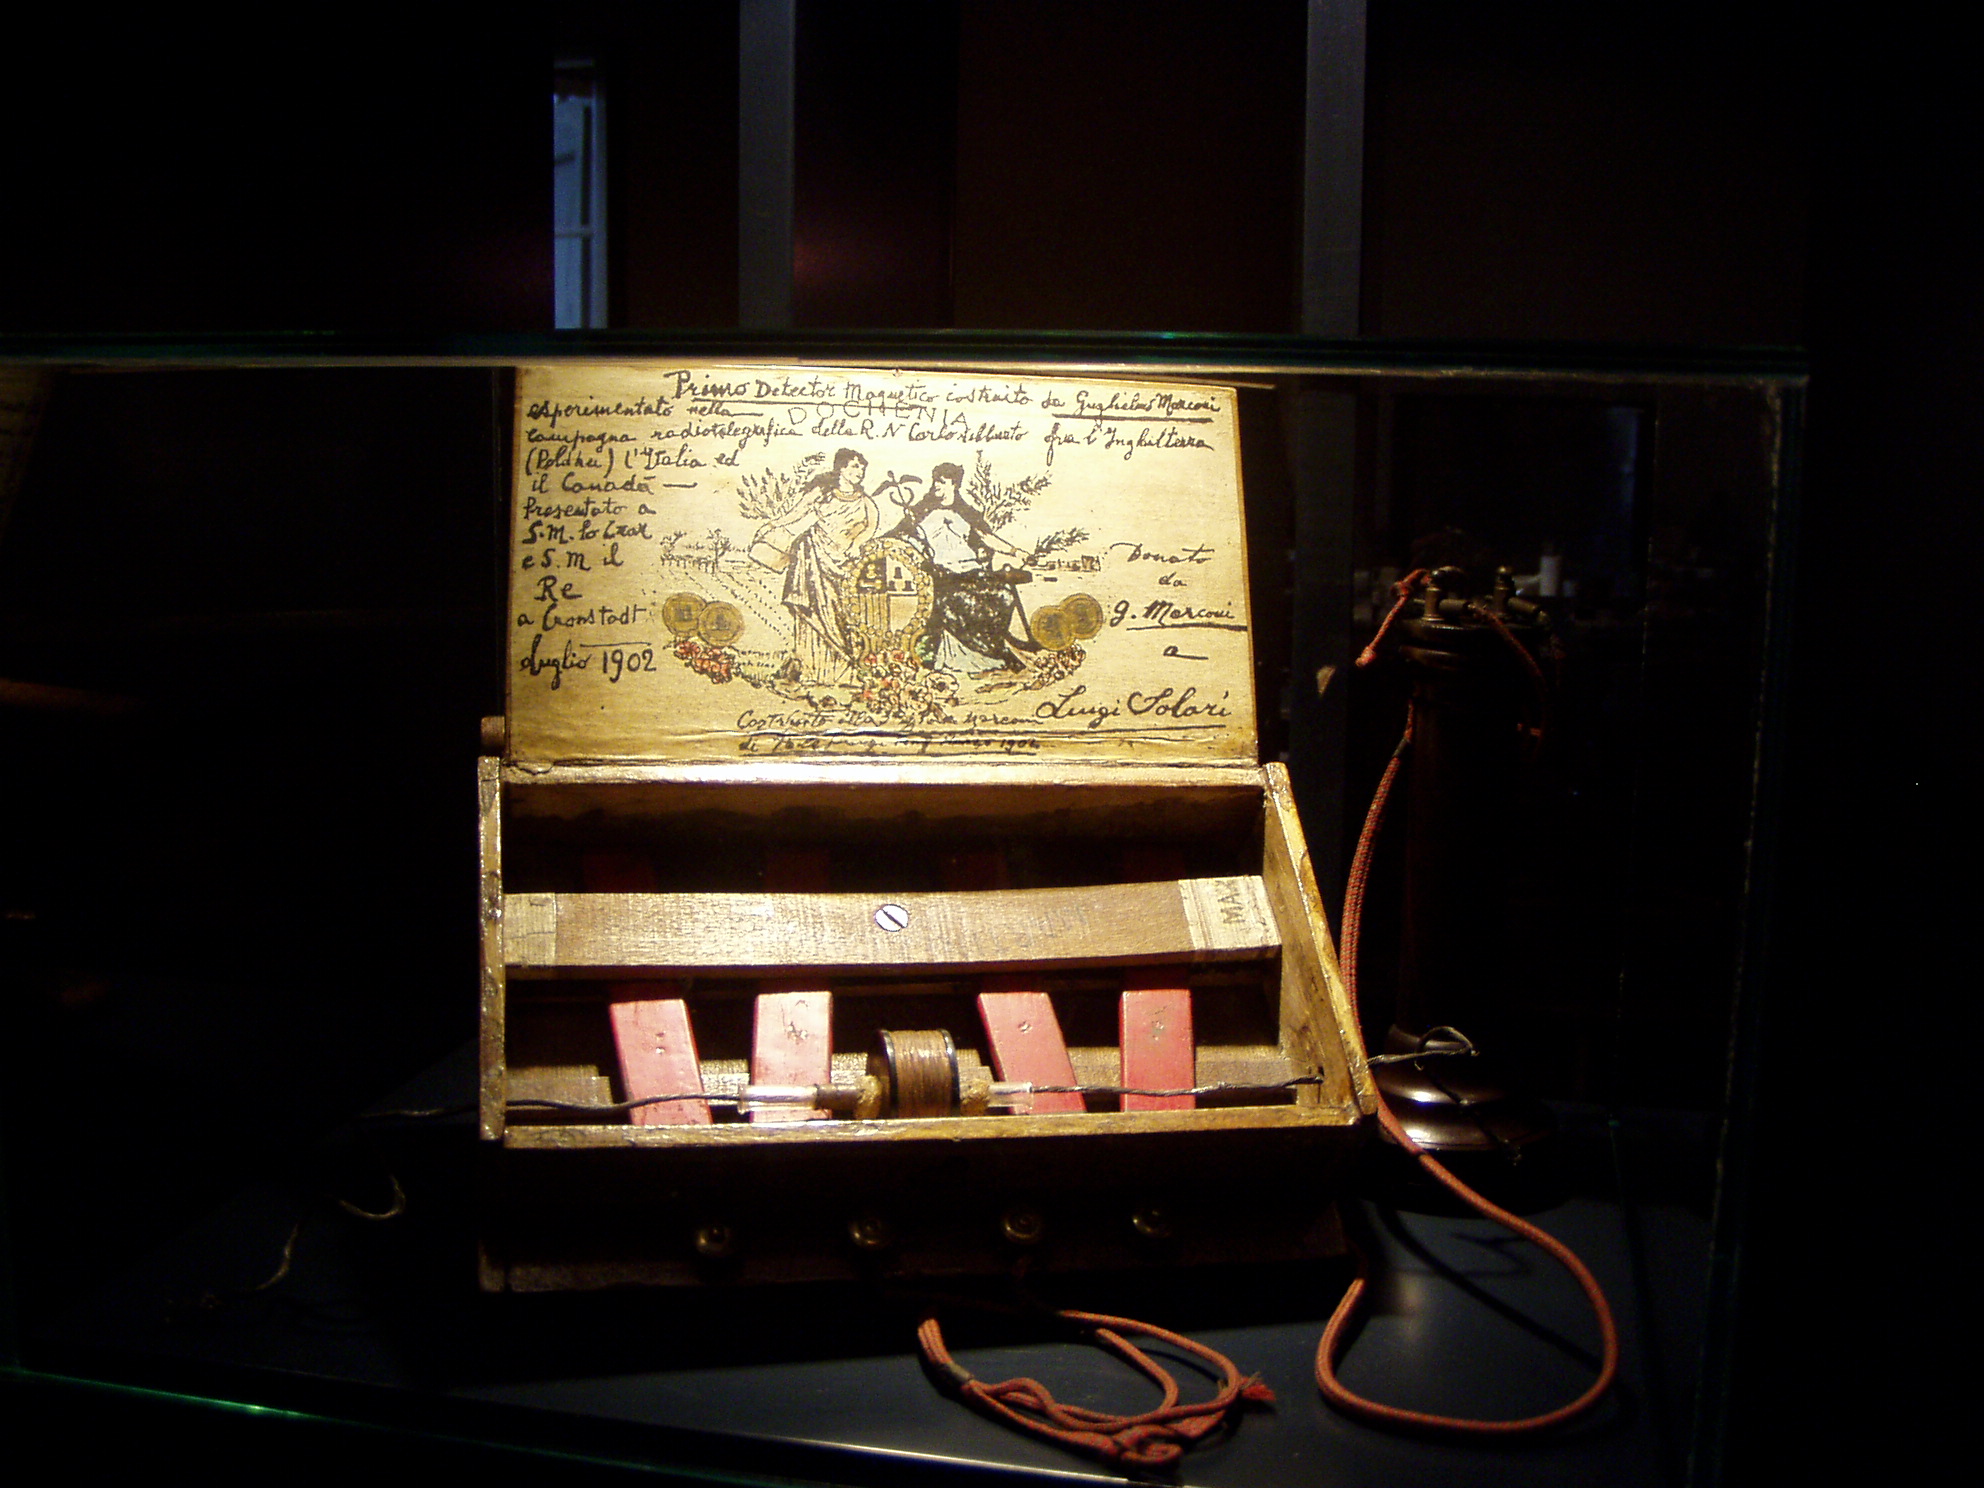 Primo Detector Magnetico costruito da Guglielmo Marconi
esperimentato nella
DOCHENIA
campagna radiotelegrafica della R. N Carlo Alberto fra l'Inghilterra
(Poldhu) l'Italia ed
il Canadà —
Presentato a
S.M. lo Czar
e S.M il
Re
a Cronstadt
Luglio 1902
Donato
da
G. Marconi
a
Luigi Solari
Costruito Marconi
1902
MAX